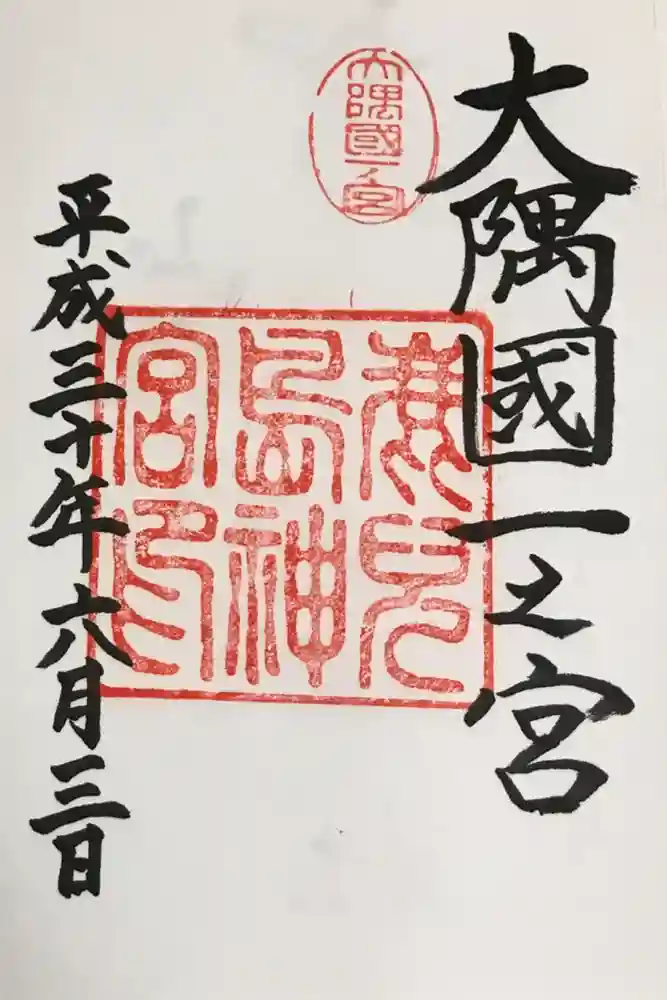 大隅國一之宮
大隅國一宮
鹿兒島神宮印
平成三十年六月三日